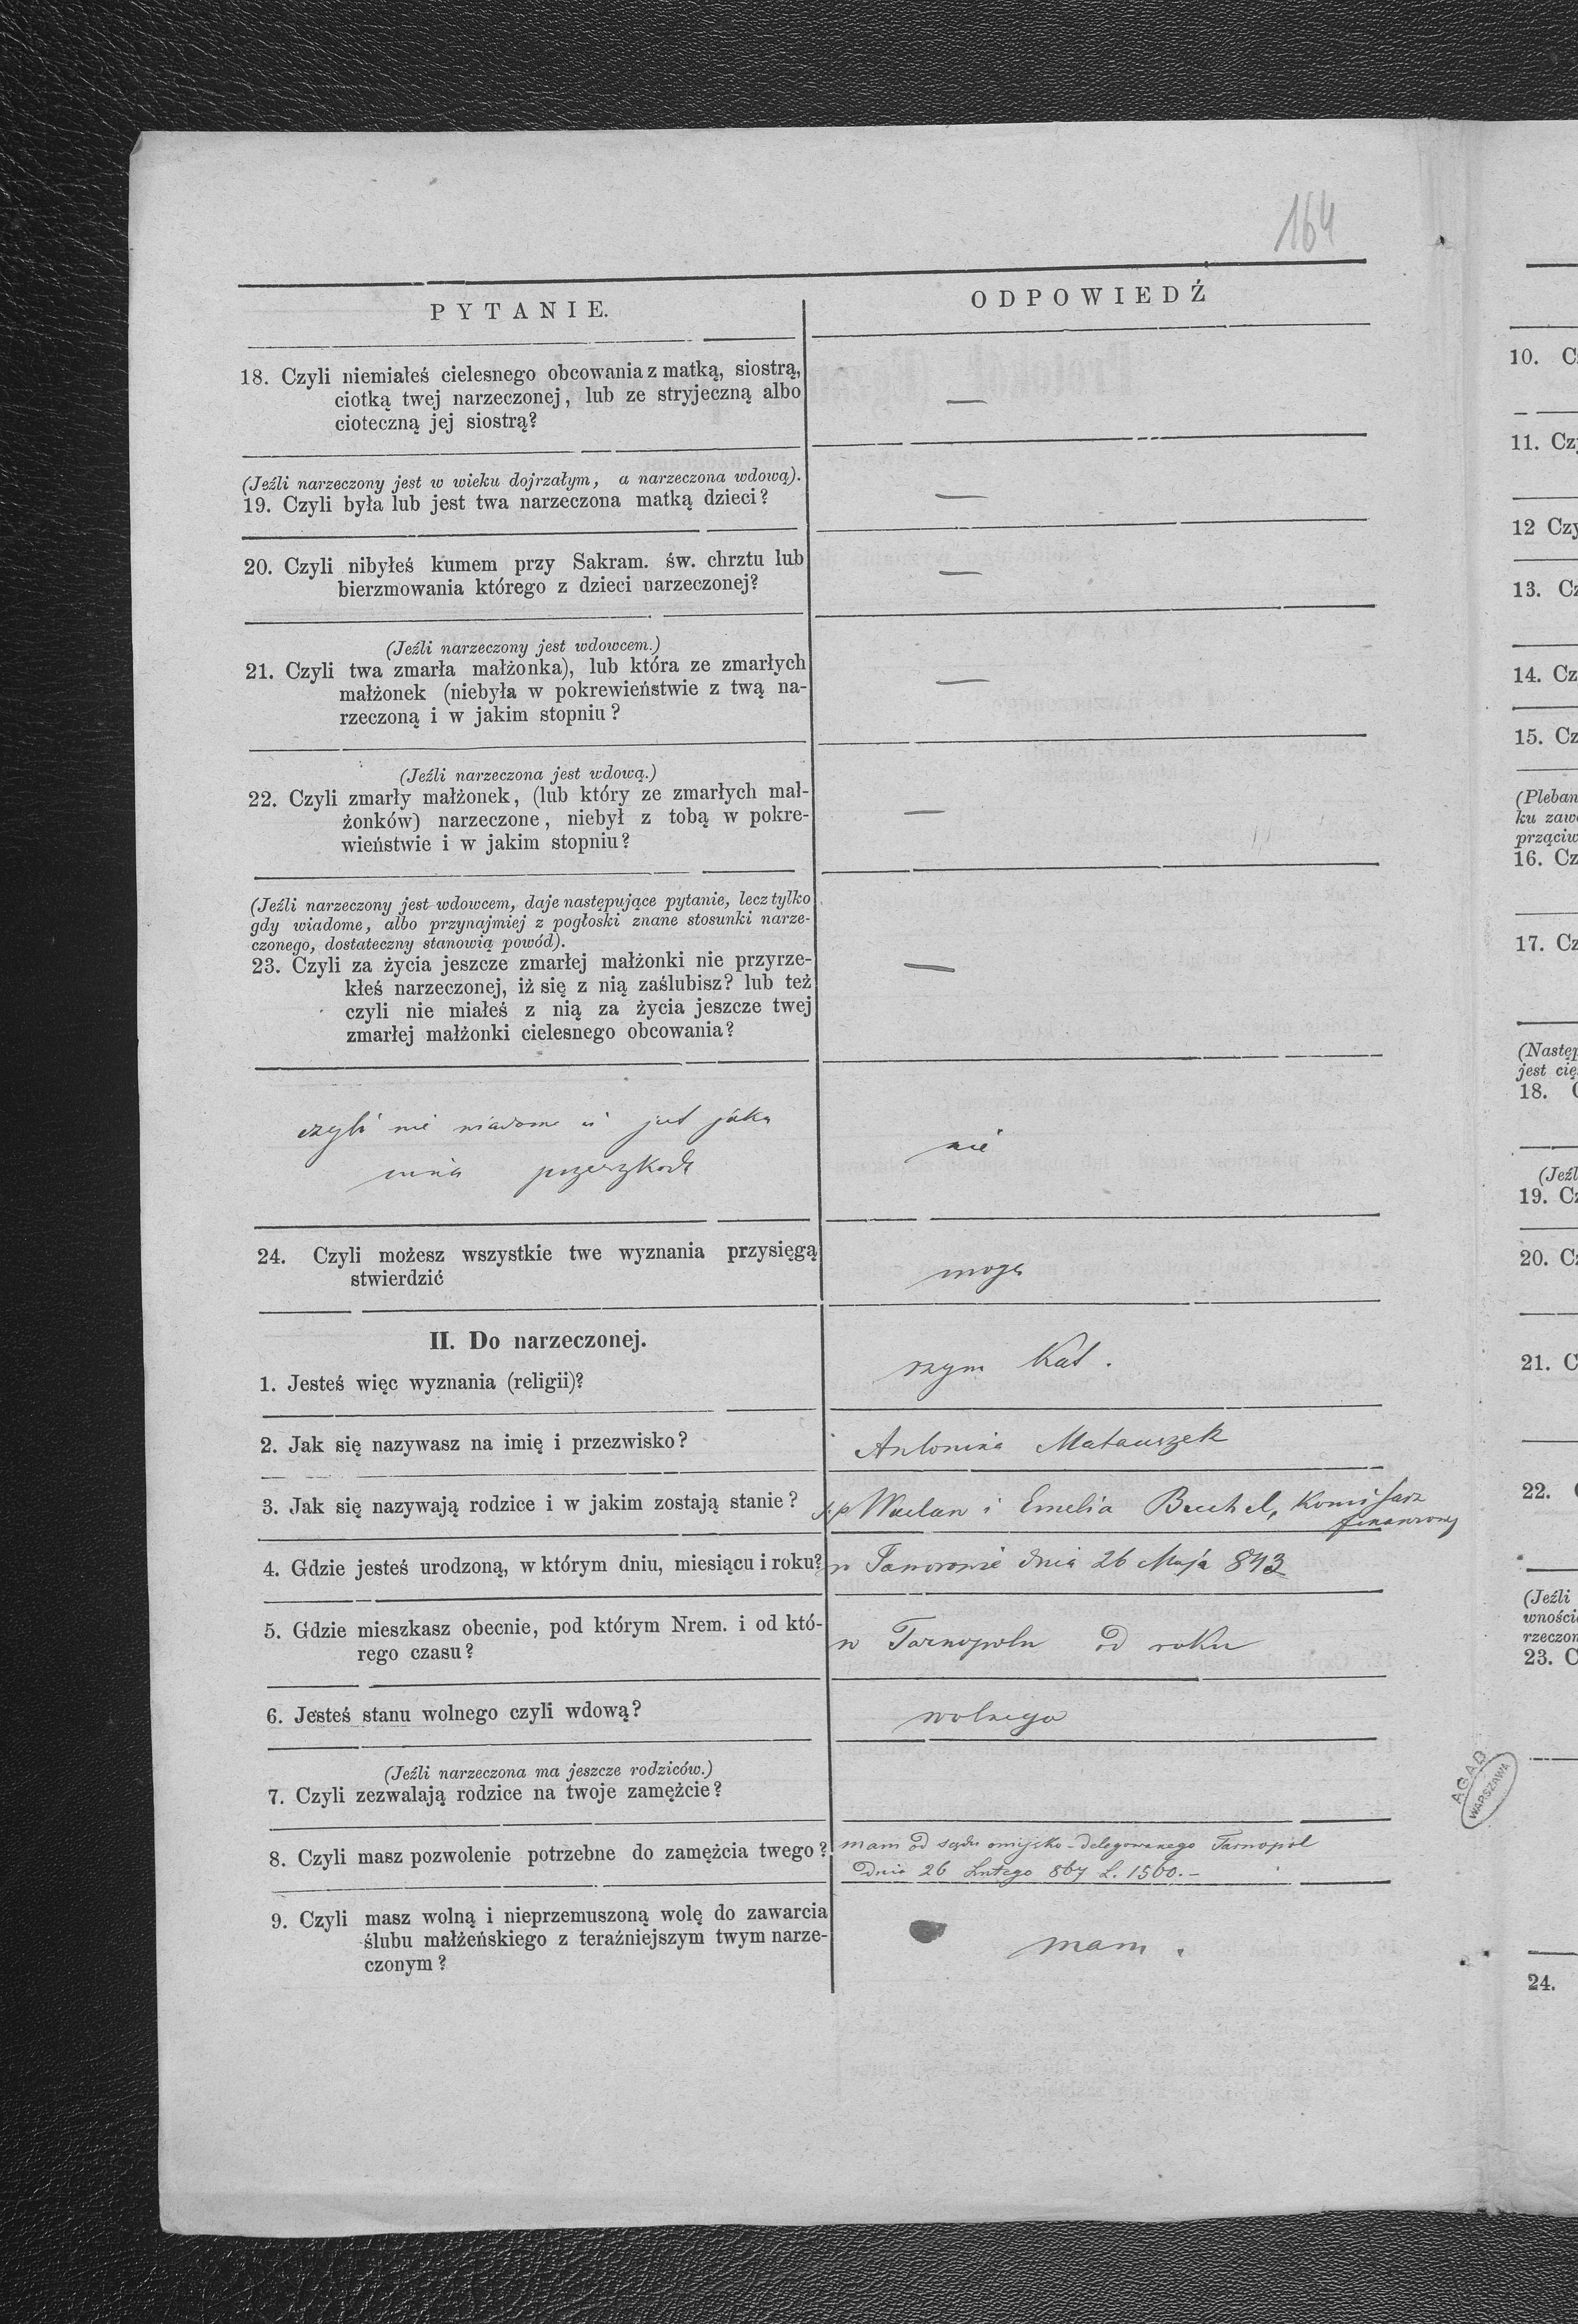 164
PYTANIE.
ODPOWIEDŹ
18. Czyli niemiałeś cielesnego obcowania z matką, siostrą,
ciotką twej narzeczonej, lub ze stryjeczną albo
cioteczną jej siostrą?
—
(Jeźli narzeczony jest w wieku dojrzałym, a narzeczona wdową).
19. Czyli była lub jest twa narzeczona matką dzieci?
—
20. Czyli nibyłeś kumem przy Sakram. św. chrztu lub
bierzmowania którego z dzieci narzeczonej?
—
(Jeźli narzeczony jest wdowcem.)
21. Czyli twa zmarła małżonka), lub która ze zmarłych
małżonek (niebyła w pokrewieństwie z twą na-
rzeczoną i w jakim stopniu?
—
(Jeźli narzeczona jest wdową.)
22. Czyli zmarły małżonek, (lub który ze zmarłych mał-
żonków) narzeczone, niebył z tobą w pokre-
wieństwie i w jakim stopniu?
—
(Jeźli narzeczony jest wdowcem, daje następujące pytanie, lecz tylko
gdy wiadome, albo przynajmiej z pogłoski znane stosunki narze-
czonego, dostateczny stanowią powód).
23. Czyli za życia jeszcze zmarłej małżonki nie przyrze-
kłeś narzeczonej, iż się z nią zaślubisz? lub też
czyli nie miałeś z nią za życia jeszcze twej
zmarłej małżonki cielesnego obcowania?
—
czyli nie wiadome ci jest jaka
inna przeszkoda
nie
24. Czyli możesz wszystkie twe wyznania przysięgą
stwierdzić
mogę
II. Do narzeczonej.
1. Jesteś więc wyznania (religii)?
rzym Kat.
2. Jak się nazywasz na imię i przezwisko?
Antonina Matauszek
3. Jak się nazywają rodzice i w jakim zostają stanie?
ś.p Waclaw i Emelia Bechel, Komisarz
finansowy
4. Gdzie jesteś urodzoną, w którym dniu, miesiącu i roku?
w dnia 26 Maja 843
5. Gdzie mieszkasz obecnie, pod którym Nrem. i od któ-
rego czasu?
w Tarnopolu od roku
6. Jesteś stanu wolnego czyli wdową?
wolnego
(Jeźli narzeczona ma jeszcze rodziców.)
7. Czyli zezwalają rodzice na twoje zamężcie?
8. Czyli masz pozwolenie potrzebne do zamężcia twego?
mam od sądu miejsko-delegowanego Tarnopol
Dnia 26 Lutego 867 L. 1560.-
9. Czyli masz wolną i nieprzemuszoną wolę do zawarcia
ślubu małżeńskiego z teraźniejszym twym narze-
czonym?
mam.
10. C
11. Czy
12 Czy
13. Cz
14. Cz
15. Cz
(Pleban
ku zaw
prząciw
16. Cz
17. Cz
(Następ
jest cię
18.
(Jeźl
19. Cz
20. Cz
21. C
22.
(Jeźli
wności
rzeczon
23. C
24.
AGAD
WARSZAWA